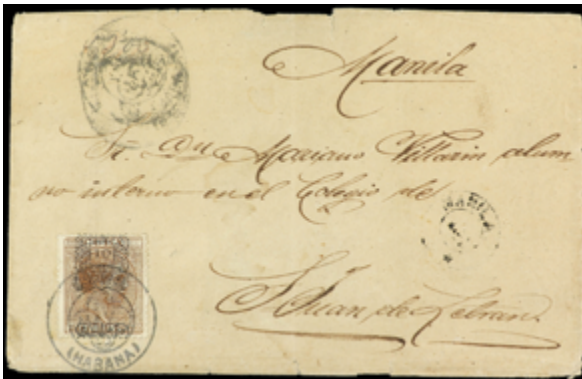 Manila
Sr. Dn Mariano Villarin alum-
no interno en el Colegio de
S. Juan de Letran.
MANILA
(HABANA)